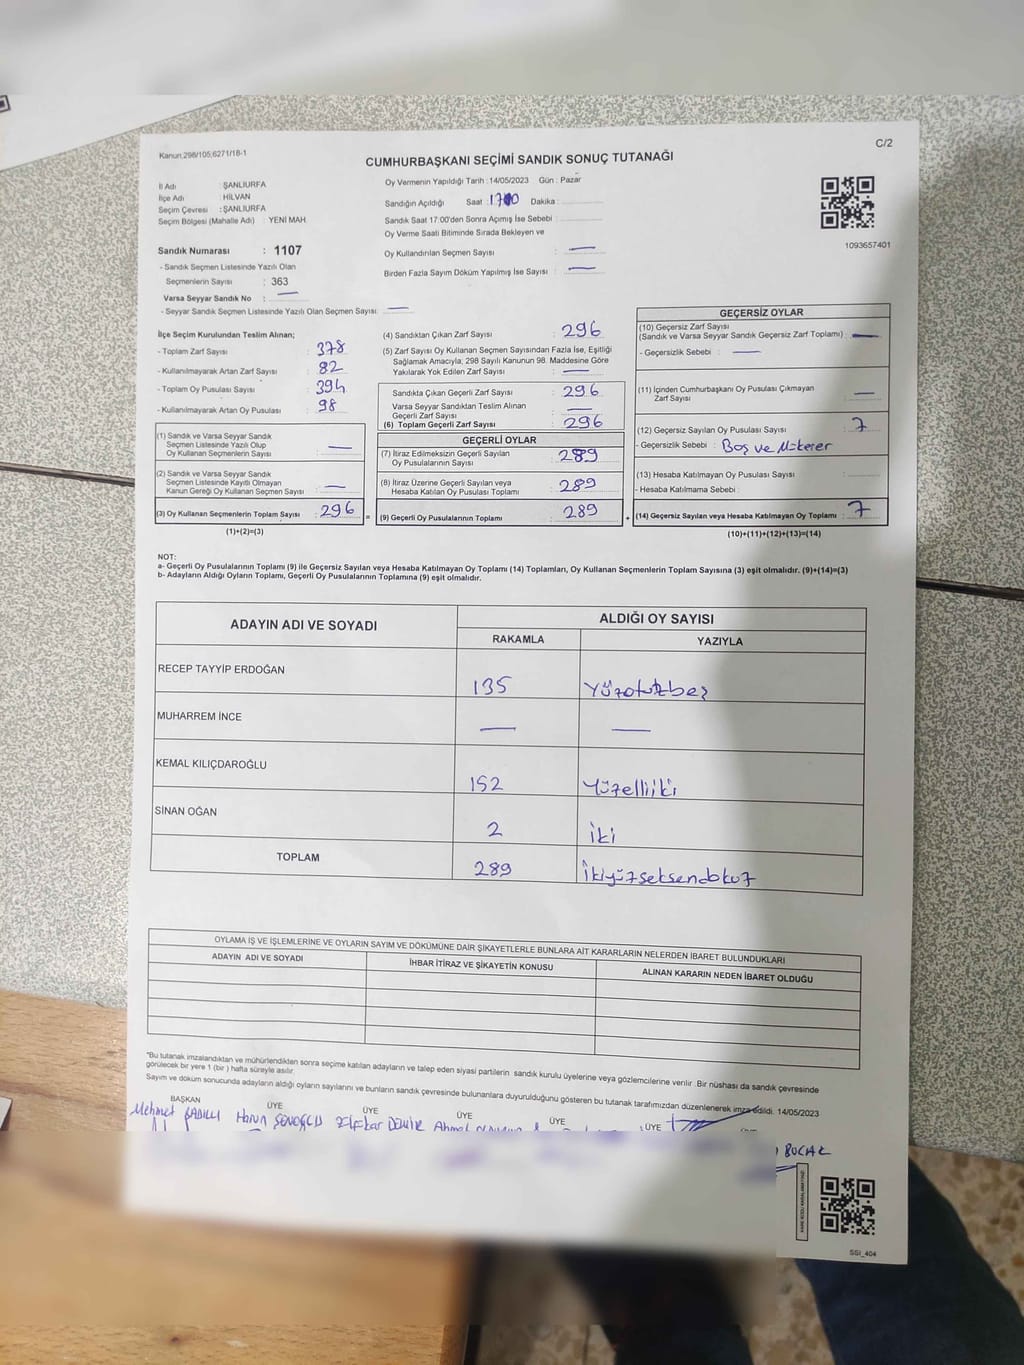 C/2
Kanun:298/105,6271/18-1
CUMHURBAŞKANI SEÇİMİ SANDIK SONUÇ TUTANAĞI
İl Adı : ŞANLIURFA
İlçe Adı : HİLVAN
Seçim Çevresi : ŞANLIURFA
Seçim Bölgesi (Mahalle Adı) : YENİ MAH.
Oy Vermenin Yapıldığı Tarih :14/05/2023 Gün : Pazar
Sandığın Açıldığı Saat :1700 Dakika :
Sandık Saat 17:00'den Sonra Açmış İse Sebebi :
Oy Verme Saati Bitiminde Sırada Bekleyen ve
Oy Kullandırılan Seçmen Sayısı : —
Birden Fazla Sayım Döküm Yapılmış İse Sayısı : —
1093657401
Sandık Numarası : 1107
- Sandık Seçmen Listesinde Yazılı Olan
Seçmenlerin Sayısı : 363
Varsa Seyyar Sandık No : —
- Seyyar Sandık Seçmen Listesinde Yazılı Olan Seçmen Sayısı: —
İlçe Seçim Kurulundan Teslim Alınan;
- Toplam Zarf Sayısı : 378
- Kullanılmayarak Artan Zarf Sayısı : 82
- Toplam Oy Pusulası Sayısı : 394
- Kullanılmayarak Artan Oy Pusulası : 98
(1) Sandık ve Varsa Seyyar Sandık
Seçmen Listesinde Yazılı Olup
Oy Kullanan Seçmenlerin Sayısı : —
(2) Sandık ve Varsa Seyyar Sandık
Seçmen Listesinde Kayıtlı Olmayan
Kanun Gereği Oy Kullanan Seçmen Sayısı : —
(3) Oy Kullanan Seçmenlerin Toplam Sayısı : 296 =
(1)+(2)=(3)
(4) Sandıktan Çıkan Zarf Sayısı : 296
(5) Zarf Sayısı Oy Kullanan Seçmen Sayısından Fazla İse, Eşitliği
Sağlamak Amacıyla; 298 Sayılı Kanunun 98. Maddesine Göre
Yakılarak Yok Edilen Zarf Sayısı : —
Sandıkta Çıkan Geçerli Zarf Sayısı : 296
Varsa Seyyar Sandıktan Teslim Alınan
Geçerli Zarf Sayısı : —
(6) Toplam Geçerli Zarf Sayısı : 296
GEÇERLİ OYLAR
(7) İtiraz Edilmeksizin Geçerli Sayılan
Oy Pusulalarının Sayısı : 289
(8) İtiraz Üzerine Geçerli Sayılan veya
Hesaba Katılan Oy Pusulası Toplamı : 289
(9) Geçerli Oy Pusulalarının Toplamı : 289 +
GEÇERSİZ OYLAR
(10) Geçersiz Zarf Sayısı
(Sandık ve Varsa Seyyar Sandık Geçersiz Zarf Toplamı) : —
- Geçersizlik Sebebi : —
(11) İçinden Cumhurbaşkanı Oy Pusulası Çıkmayan
Zarf Sayısı : —
(12) Geçersiz Sayılan Oy Pusulası Sayısı : 7
- Geçersizlik Sebebi : Boş ve Mükerer
(13) Hesaba Katılmayan Oy Pusulası Sayısı :
- Hesaba Katılmama Sebebi :
(14) Geçersiz Sayılan veya Hesaba Katılmayan Oy Toplamı : 7
(10)+(11)+(12)+(13)=(14)
NOT:
a- Geçerli Oy Pusulalarının Toplamı (9) ile Geçersiz Sayılan veya Hesaba Katılmayan Oy Toplamı (14) Toplamları, Oy Kullanan Seçmenlerin Toplam Sayısına (3) eşit olmalıdır. (9)+(14)=(3)
b- Adayların Aldığı Oyların Toplamı, Geçerli Oy Pusulalarının Toplamına (9) eşit olmalıdır.
ADAYIN ADI VE SOYADI ALDIĞI OY SAYISI
RAKAMLA YAZIYLA
RECEP TAYYİP ERDOĞAN 135 Yüzotuzbeş
MUHARREM İNCE — —
KEMAL KILIÇDAROĞLU 152 Yüzelliiki
SİNAN OĞAN 2 İki
TOPLAM 289 İkiyüzseksendokuz
OYLAMA İŞ VE İŞLEMLERİNE VE OYLARIN SAYIM VE DÖKÜMÜNE DAİR ŞİKAYETLERLE BUNLARA AİT KARARLARIN NELERDEN İBARET BULUNDUKLARI
ADAYIN ADI VE SOYADI İHBAR İTİRAZ VE ŞİKAYETİN KONUSU ALINAN KARARIN NEDEN İBARET OLDUĞU
"Bu tutanak imzalandıktan ve mühürlendikten sonra seçime katılan adayların ve talep eden siyasi partilerin sandık kurulu üyelerine veya gözlemcilerine verilir. Bir nüshası da sandık çevresinde
görülecek bir yere 1 (bir) hafta süreyle asılır.
Sayım ve döküm sonucunda adayların aldığı oyların sayılarını ve bunların sandık çevresinde bulunanlara duyurulduğunu gösteren bu tutanak tarafımızdan düzenlenerek imza edildi. 14/05/2023
BAŞKAN ÜYE ÜYE ÜYE ÜYE ÜYE
Mehmet Harun Ahmet
BUCAK
SSİ_404